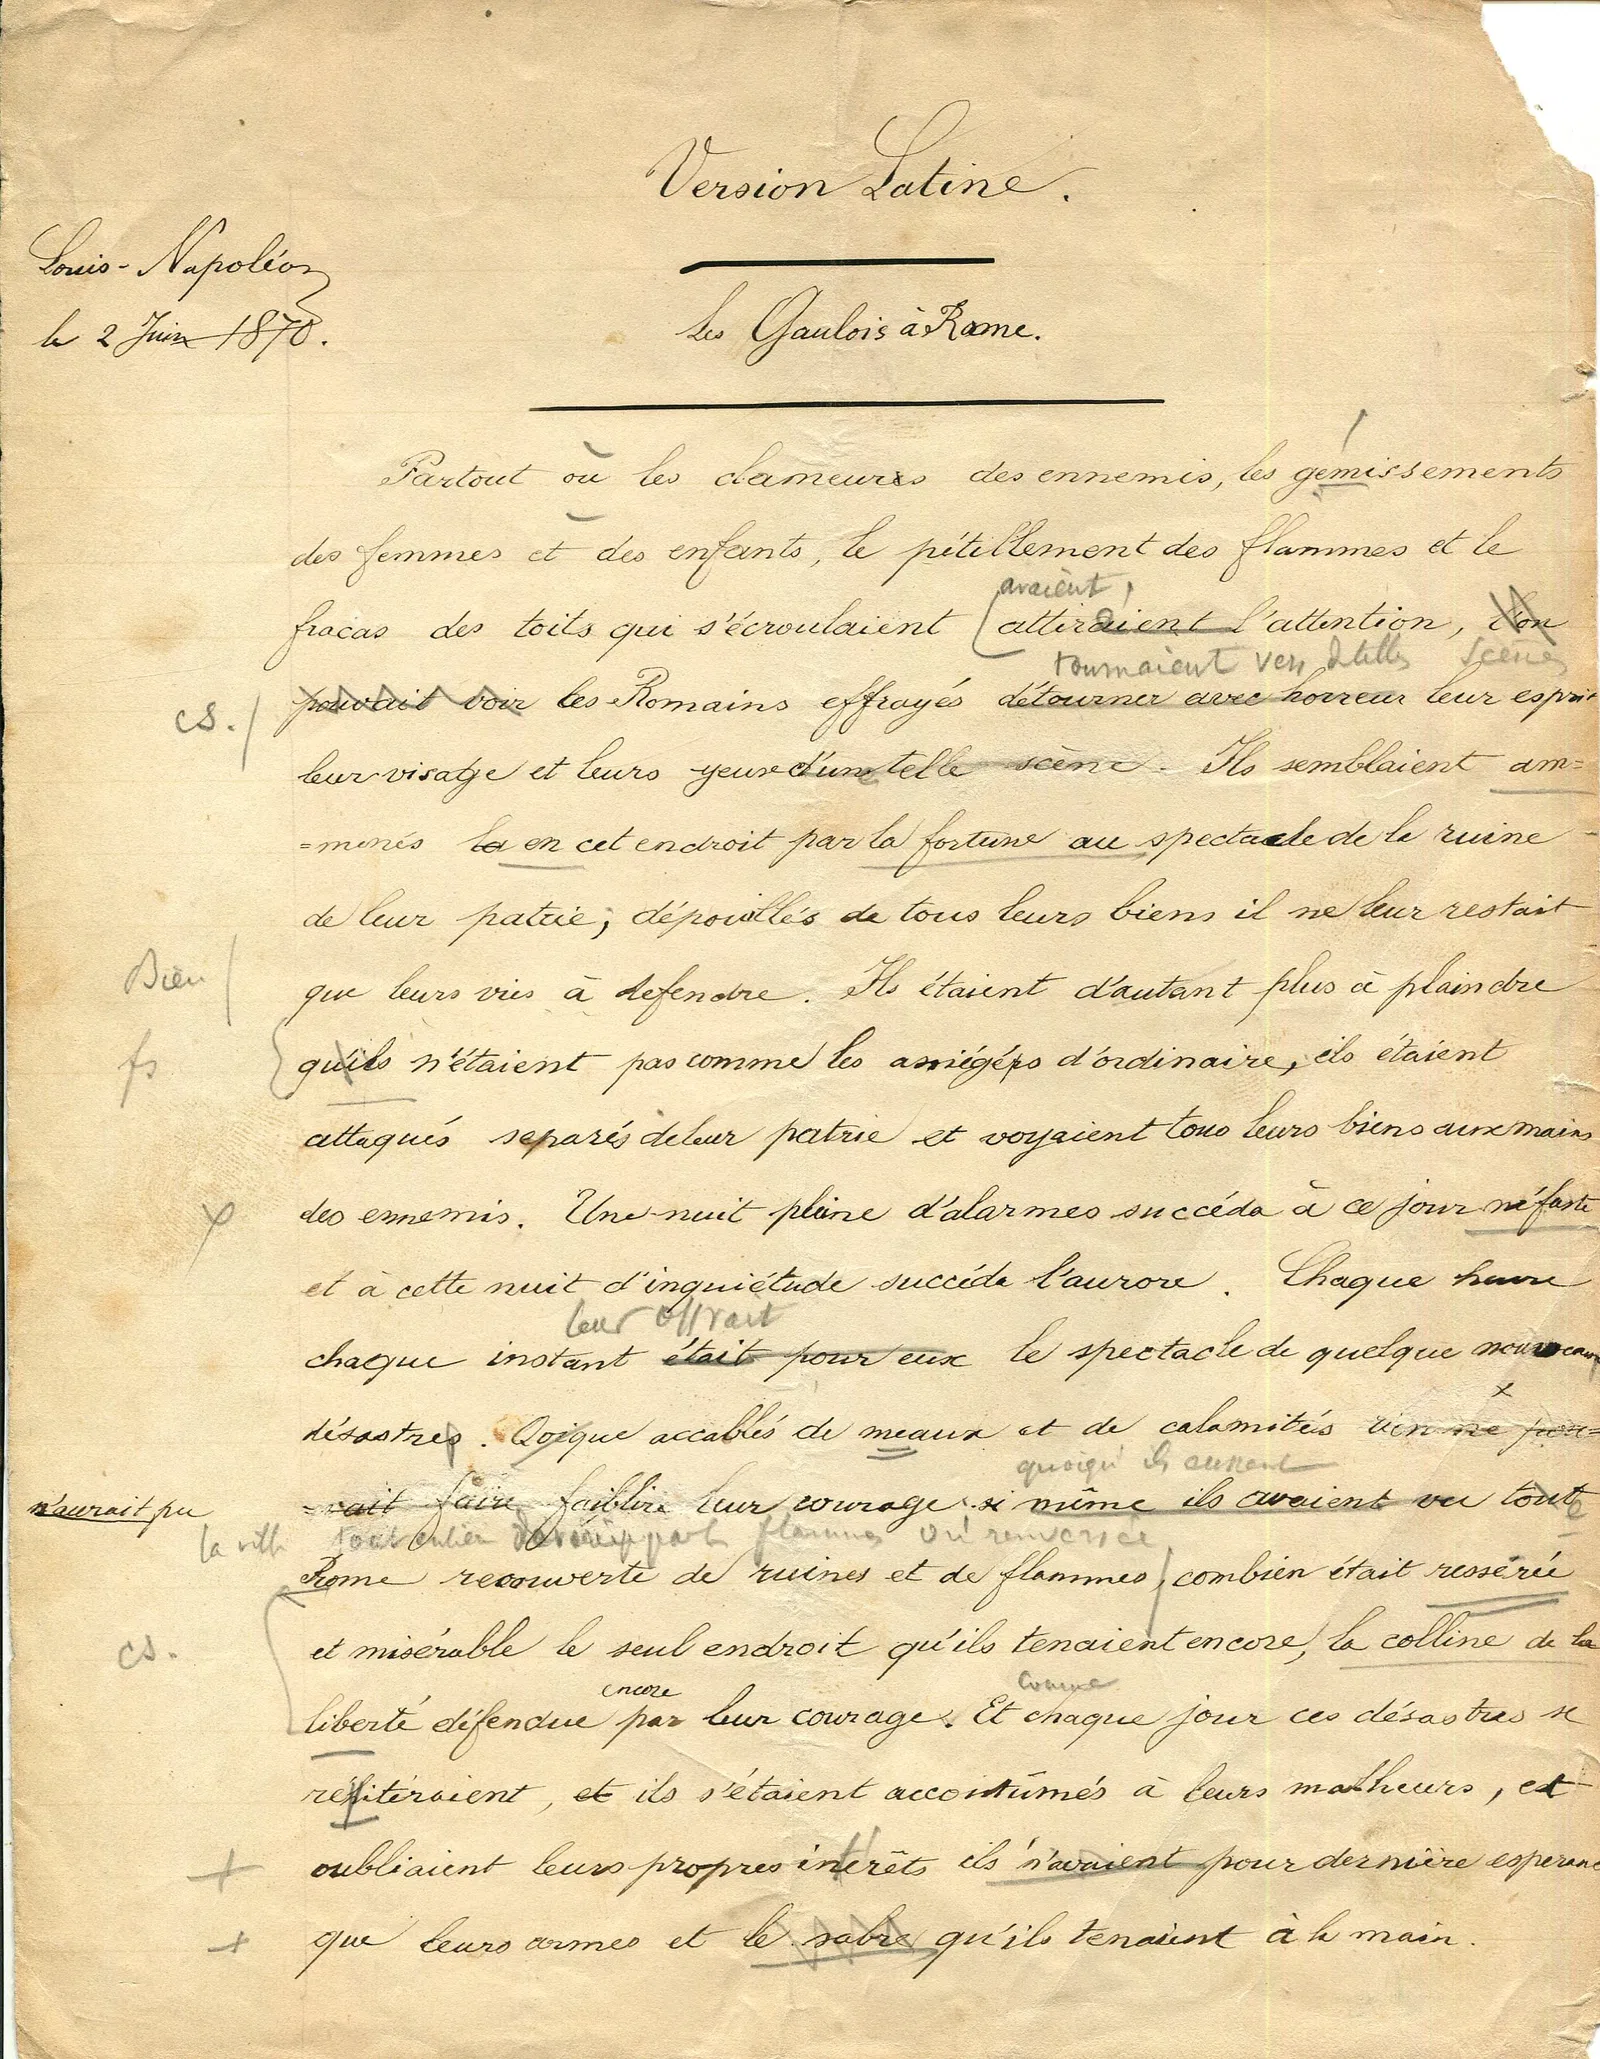 Version Latine.
Louis-Napoléon
le 2 Juin 1870.
Les Gaulois à Rome.
Partout où les clameurs des ennemis, les gémissements
des femmes et des enfants, le pétillement des flammes et le
avaient
fracas des toits qui s'écroulaient attiraient l'attention, l'on
tournaient vers de telles scènes
cs.
pouvait voir les Romains effrayés détourner avec horreur leur esprit
leur visage et leurs yeux d'une telle scène. Ils semblaient am=
=menés là en cet endroit par la fortune au spectacle de la ruine
de leur patrie; dépouillés de tous leurs biens il ne leur restait
Bien
que leurs vies à defendre. Ils étaient d'autant plus à plaindre
fs
qu'ils n'étaient pas comme les assiégés d'ordinaire, ils étaient
attaqués separés de leur patrie et voyaient tous leurs biens aux mains
des ennemis. Une nuit pleine d'alarmes succéda à ce jour néfaste
et à cette nuit d'inquiétude succéda l'aurore. Chaque heure
leur offrait
chaque instant était pour eux le spectacle de quelque nouveau
désastres. Qoique accablés de meaux et de calamités rien ne pou=
quoiqu'ils eussent
n'aurait pu
=vait faire faiblir leur courage si même ils avaient vu toute
la ville tout entière par flammes ou renversée
Rome recouverte de ruines et de flammes, combien était resserée
cs.
et misérable le seul endroit qu'ils tenaient encore, la colline de la
encore
comme
liberté défendue par leur courage. Et chaque jour ces désastres se
réhitéraient, et ils s'étaient accoutûmés à leurs malheurs, et
oubliaient leurs propres intérêts ils n'avaient pour dernière esperance
que leurs armes et le sabre qu'ils tenaient à la main.